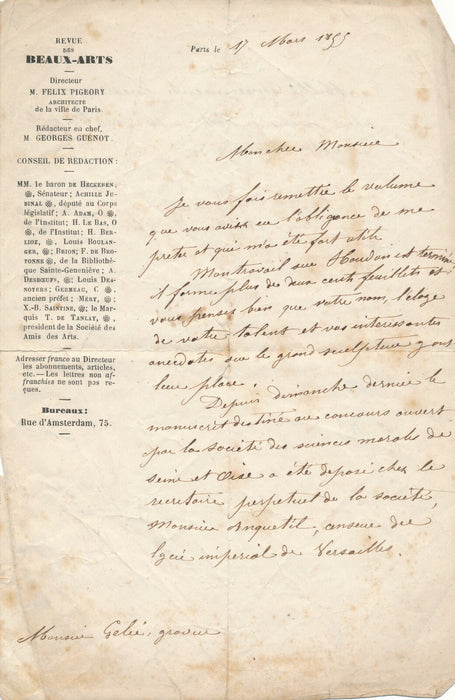 REVUE
DES
BEAUX-ARTS
Directeur
M. FELIX PIGEORY
ARCHITECTE
de la ville de Paris.
Rédacteur en chef,
M. GEORGES GUÉNOT.
CONSEIL DE RÉDACTION:
MM. le baron DE HECKEREN,
, Sénateur; ACHILLE JU-
BINAL , député au Corps
législatif; A. ADAM, O
de l'Institut; H. LE BAS, O
, de l'Institut; H. BER-
LIOZ, , Louis BOULAN-
GER, ; BRION; F. DE BRO-
TONNE, , de la Bibliothè-
que Sainte-Geneviève; A.
DESBŒUFS, ; LOUIS DES-
NOYERS; GERMEAU, C ,
ancien préfet; MÉRY, ;
X.-B. SAINTINE, ; le mar-
quis T. DE TANLAY, ,
président de la Société des
Amis des Arts.
Adresser franco au Directeur
les abonnements, articles,
etc.—Les lettres non af-
franchies ne sont pas re-
çues.
Bureaux:
Rue d'Amsterdam, 75.
Paris le 17 Mars 1855
Mon cher Monsieur
Je vous fais remettre le volume
que vous avez eu l'obligeance de me
preter et qui m'a été fort utile
Mon travail sur Houdon est terminé
il forme plus de deux cents feuillets et
vous pensez bien que votre nom, l'eloge
de votre talent et vos interessantes
anecdotes sur le grand sculpteur y ont
leur place.
Depuis dimanche dernier le
manuscrit destiné au concours ouvert
par la société des sciences morales de
seine et Oise a été deposé chez le
secretaire perpetuel de la société,
Monsieur Anquetil, censeur du
lycée impérial de Versailles.
Monsieur Gelée, graveur